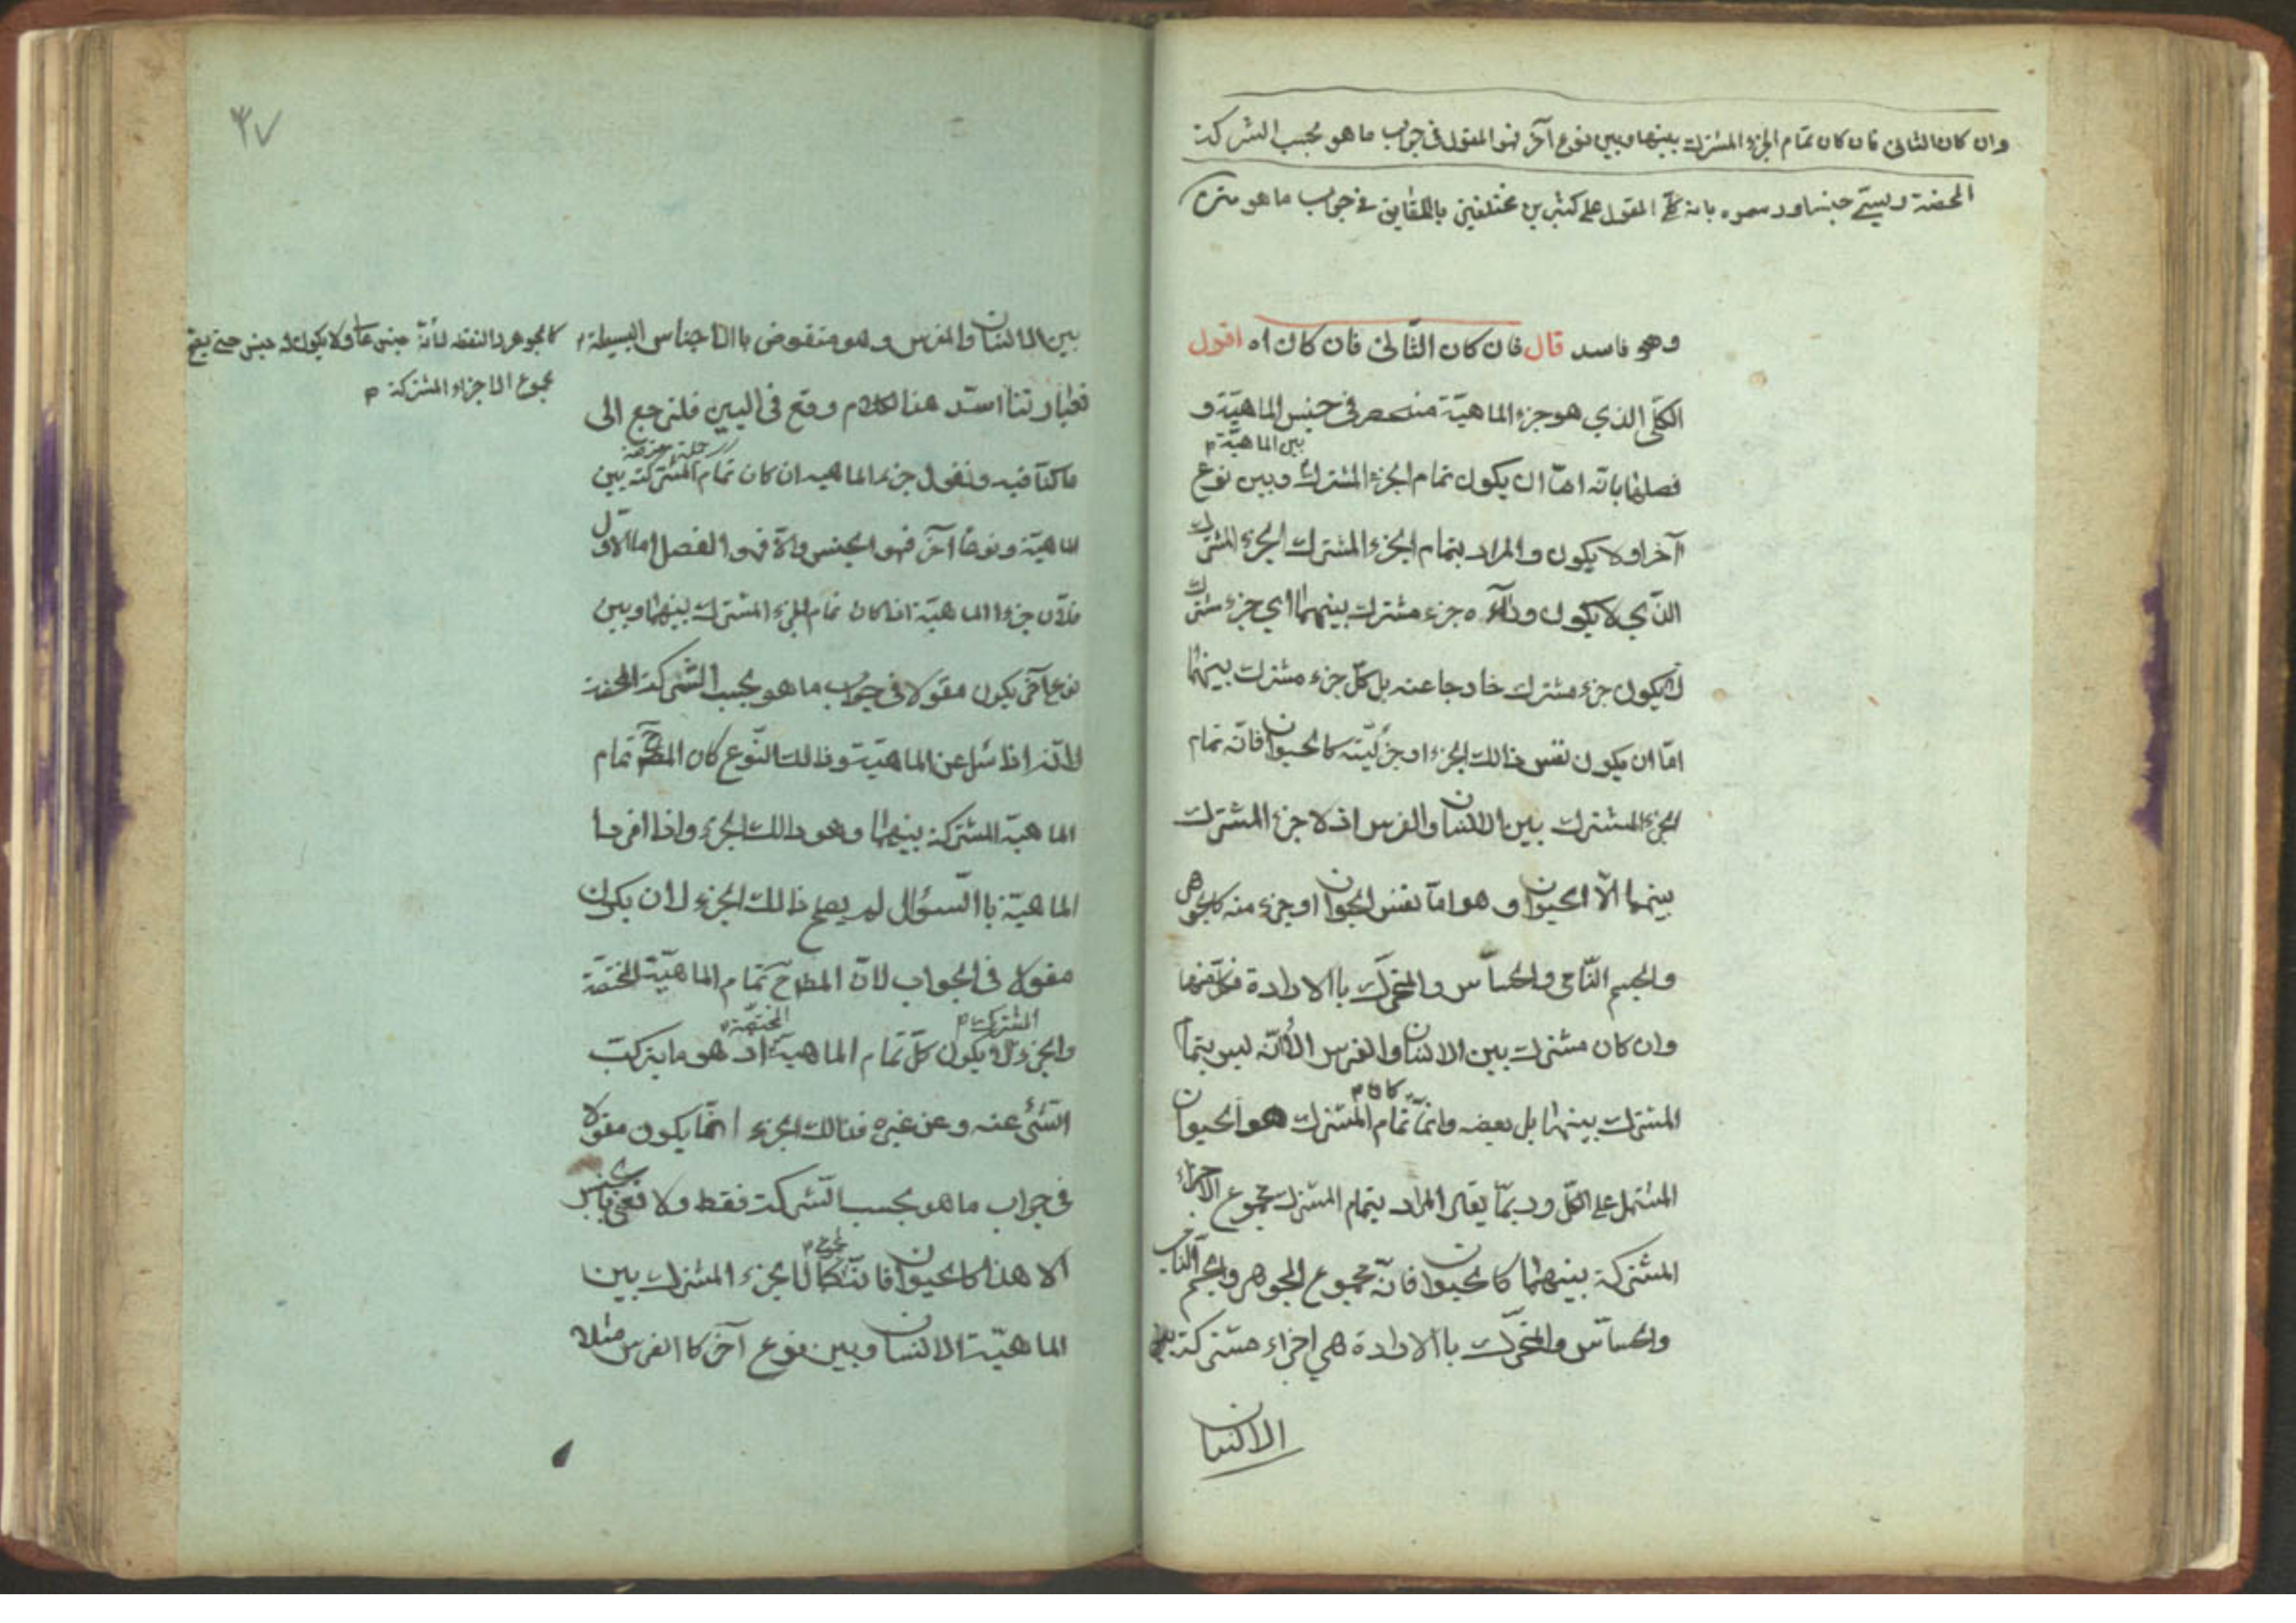 وان كان الثانى فان كان تمام الجزء المشترك بينها وبين نوع آخر فهو المقول فى جواب ما هو بحسب الشركة
المحضة ويسمى جنسا ورسموه بانه كلى المقول على كثيرين مختلفين بالحقايق فى جواب ما هو
وهو فاسد قال فان كان الثّانى فان كان اه اقول
الكلّى الذي هو جزء الماهيّة منحصر فى جنس الماهيّة و
بين الماهيّة م
فصلها بانّه امّا ان يكون تمام الجزء المشترك وبين نوع
آخر اولا يكون والمراد بتمام الجزء المشترك الجزء المشترك
الذّي لا يكون ورآءه جزء مشترك بينهما اي جزء مشترك
لا يكون جزء مشترك خارجا عنه بل كلّ جزء مشترك بينهما
امّا ان يكون نفس ذالك الجزء او جزئيّته كالحيوان فانّه تمام
الجزء المشترك بين الانسان والفرس اذ لا جزء المشترك
بينهما الّا الحيوان وهو امّا نفس الحيوان او جزء منه كالجوهر
والجسم النّامى والحسّاس والمتحرّك باالارادة فكلّ منها
وان كان مشترك بين الانسان والفرس الّا انّه ليس بتمام
المشترك بينهما بل بعضه وانّما تمام المشترك هو الحيوان
المشتمل على الكلّ وربّما يقال المراد بتمام المشترك مجموع الاجزاء
المشتركة بينهما كالحيوان فانّه مجموع الجوهر والجسم النّامى
والحسّاس والمتحرّك باالارادة هي اجزاء مشتركة بين
الانسان
٣٧
بين الانسان والفرس وهو منقوض باالاجناس البسيطة م
كالجوهر لانّه جنس عال ولا يكون له جنس حتى يصح
مجموع الاجزاء المشتركة م
فعبارتنا اسدّ هذا الكلام وقع فى البين فلنرجع الى
ما كنّا فيه ونقول جزء الماهيه ان كان تمام المشتركة بين
الماهيّة ونوعًا آخر فهو الجنس والّا فهو الفصل اما الاوّل
فلانّ جزء الماهيّة اذا كان تمام الجزء المشترك بينهما وبين
نوع آخر يكون مقولا فى جواب ما هو بحسب الشّركة المحضة
لانّه اذا سئل عن الماهيّة وذالك النّوع كان المط تمام
الماهيّة المشتركة بينهما وهو ذالك الجزء واذا افرد
الماهيّة باالسّؤال لم يصلح ذالك الجزء لان يكون
مقولا فى الجواب لانّ المط ح تمام الماهيّة المختصّة
المشترك م المختصّة م
والجزء لا يكون كلّ تمام الماهيّة اذ هو ما يتركّب
الشّئ عنه وعن غيره فذالك الجزء انّما يكون مقولا
فى جواب ما هو بحسب الشّركة فقط ولا نعنى باالجنس
الا هذا كالحيوان فانّه كمال الجزء المشترك بين
الماهيّة الانسان وبين نوع آخر كاالفرس مثلا